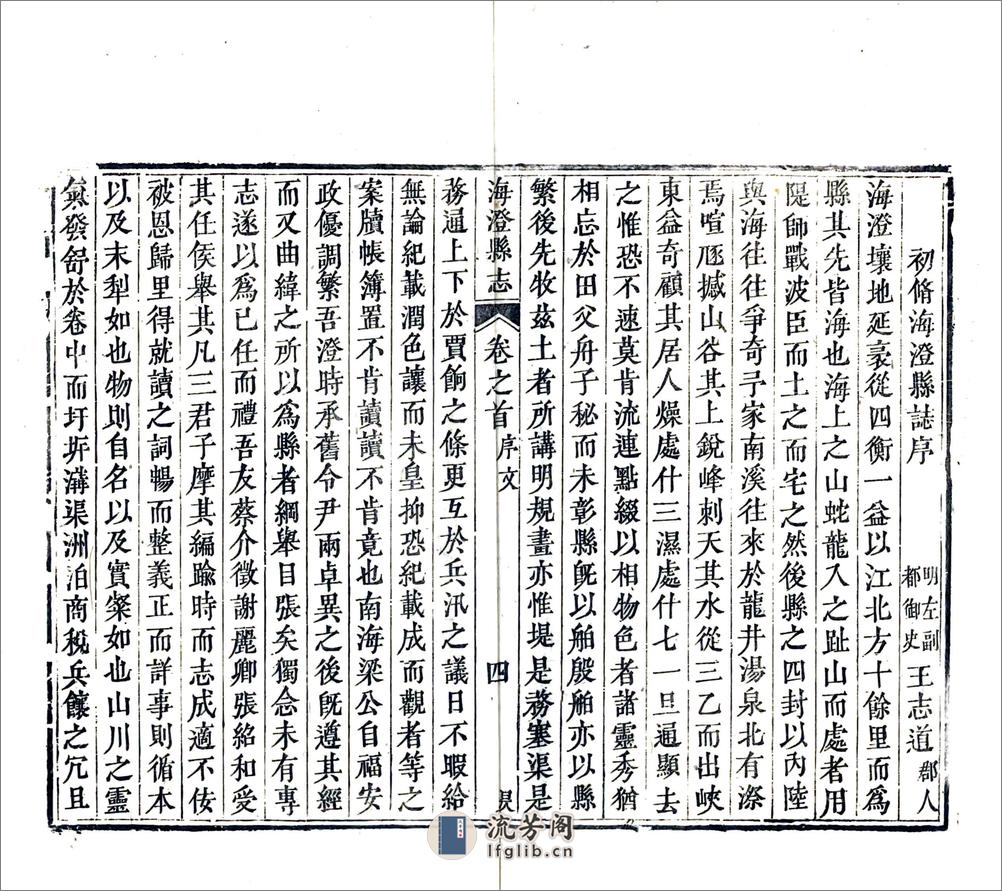 初脩海澄縣誌序 明左副都御史 王志道 郡人
海澄壤地延袤從四衡一益以江北方十餘里而爲
縣其先皆海也海上之山蛇龍入之趾山而處者用
隄師戰波臣而土之而宅之然後縣之四封以內陸
與海往往爭奇予家南溪往來於龍井湯泉北有漈
焉喧豗撼山谷其上銳峰刺天其水從三乙而出峽
東益奇顧其居人燥處什三濕處什七一旦通顯去
之惟恐不速莫肯流連點綴以相物色者諸靈秀猶
相忘於田父舟子秘而未彰縣旣以舶殷舶亦以縣
繁後先牧茲土者所講明規畫亦惟堤是務塞渠是
海澄縣志 卷之首 序文 四
務通上下於賈餉之條更互於兵汛之議日不暇給
無論紀載潤色讓而未皇抑恐紀載成而觀者等之
案牘帳簿置不肯讀讀不肯竟也南海梁公自福安
政優調繁吾澄時承舊令尹兩卓異之後旣遵其經
而又曲緯之所以爲縣者綱舉目張矣獨念未有專
志遂以爲已任而禮吾友蔡介徵謝麗卿張紹和受
其任侯舉其凡三君子摩其編踰時而志成適不佞
被恩歸里得就讀之詞暢而整義正而詳事則循本
以及末犁如也物則自名以及實粲如也山川之靈
氣發舒於卷中而圩圻溝渠洲泊商稅兵饟之冗且
流芳阁
lfglib.cn